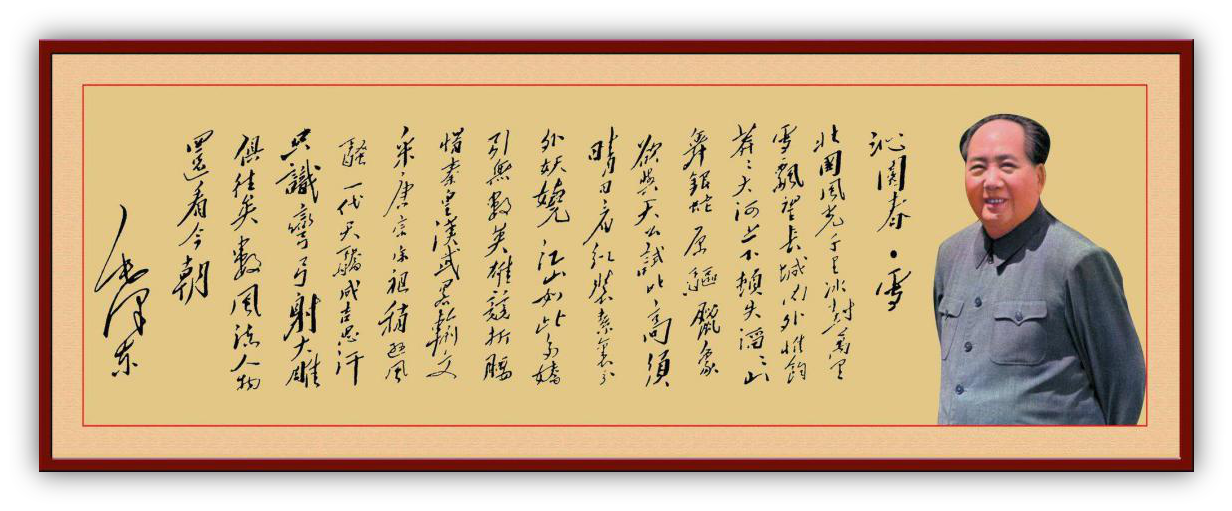 沁園春·雪
北國風光千里冰封萬里
雪飄望長城內外惟餘
莽〻大河上下頓失滔〻山
舞銀蛇原驅臘象
欲與天公試比高須
晴日看紅裝素裹分
外妖嬈江山如此多嬌
引無數英雄競折腰
惜秦皇漢武略輸文
采唐宗宋祖稍遜風
騷一代天驕成吉思汗
只識彎弓射大雕
俱往矣數風流人物
還看今朝
毛澤東